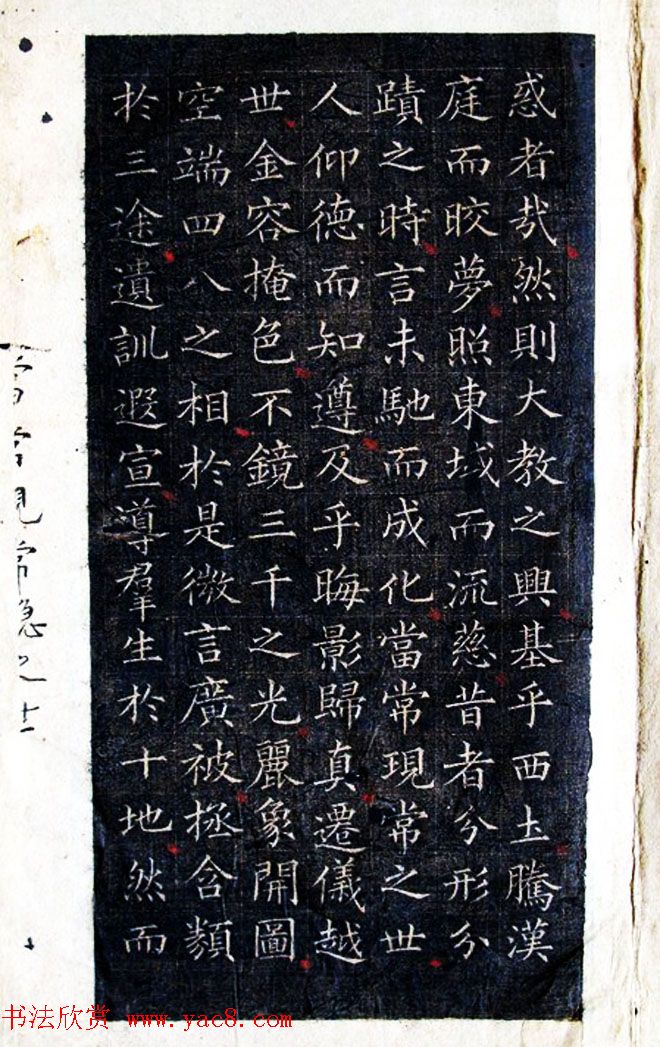 惑者哉然則大教之興基乎西土騰漢
庭而晈夢照東域而流慈昔者分形分
蹟之時言未馳而成化當常現常之世
人仰德而知遵及乎晦影歸真遷儀越
世金容掩色不鏡三千之光麗象開圖
空端四八之相於是微言廣被拯含類
於三途遺訓遐宣導羣生於十地然而
书法欣赏 www.yac8.com